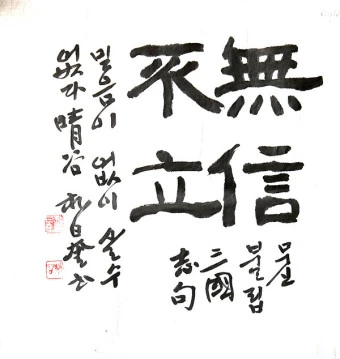 無信
不立
무신
불립
三國
志句
믿음이 없이 살 수
없다 晴谷